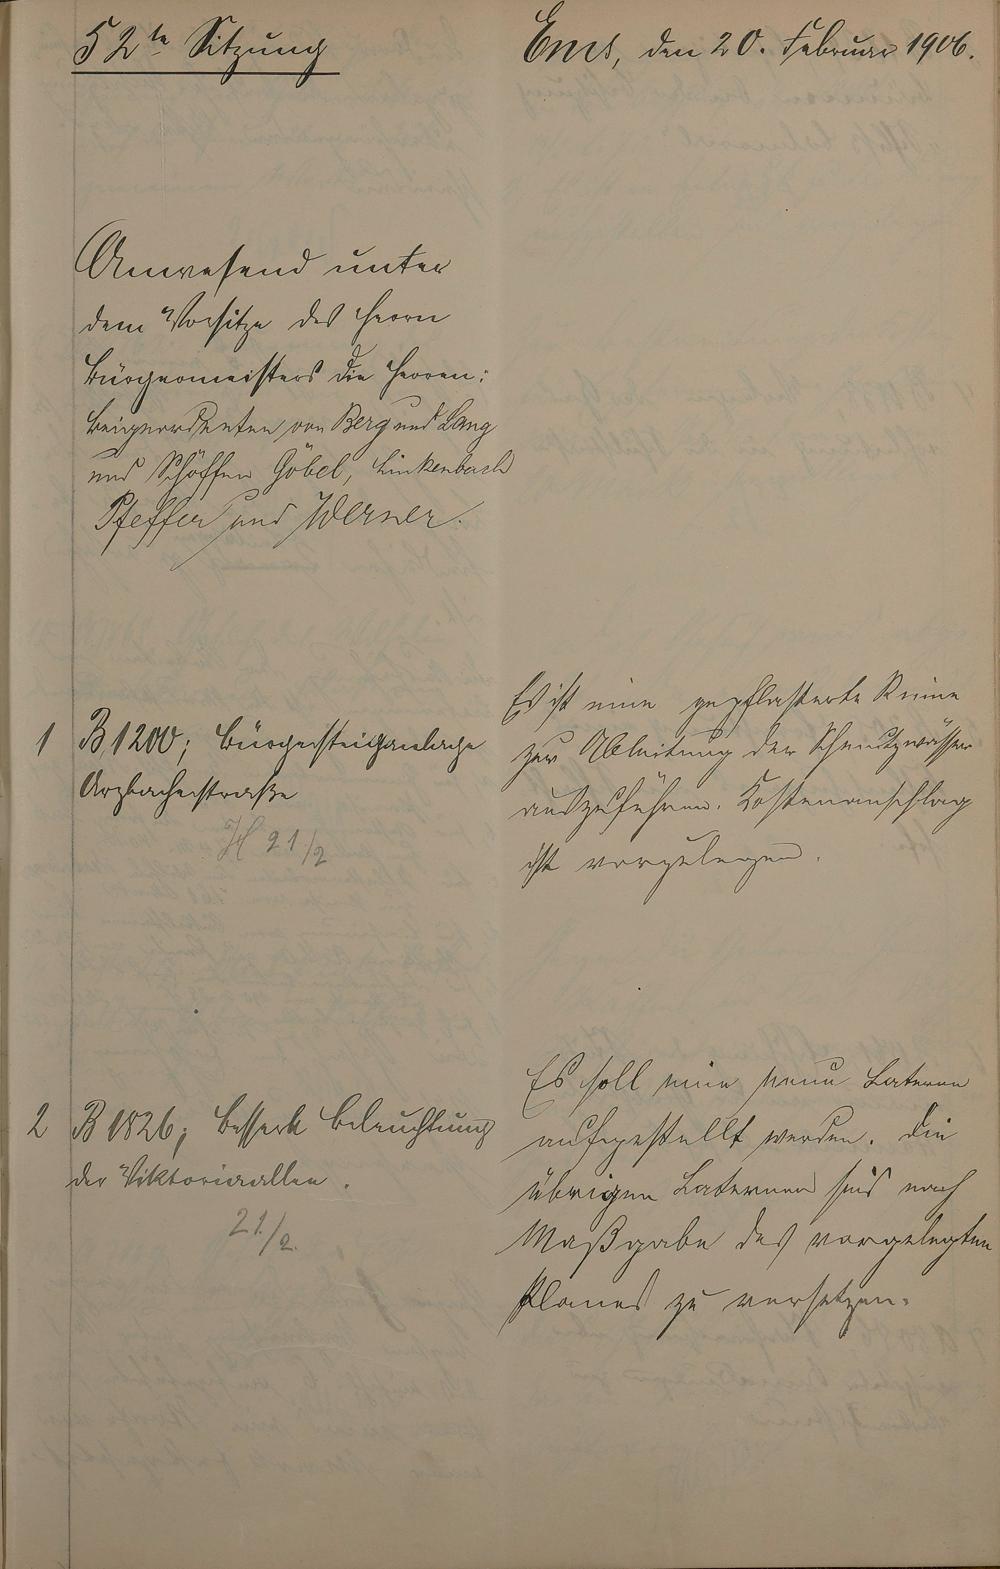 52te Sitzung
Ems, den 20. Februar 1906.
Anwesend unter
dem Vorsitze des Herrn
Bürgermeisters die Herren:
Beigeordneten von Berg und Lang
und Schöffen Göbel, Linkenbach
Pfeffer und Werner.
1 B 1200; Bürgersteiganlage
Arzbacherstraße
H 21/2
Es ist eine gepflasterte Rinne
zur Ableitung der Schmutzwässer
auszuführen. Kostenanschlag
ist vorzulegen.
2 B 1826; bessere Beleuchtung
der Viktoriaallee.
21/2.
Es soll eine neue Laterne
aufgestellt werden. Die
übrigen Laternen sind nach
Maßgabe des vorgelegten
Planes zu versetzen.